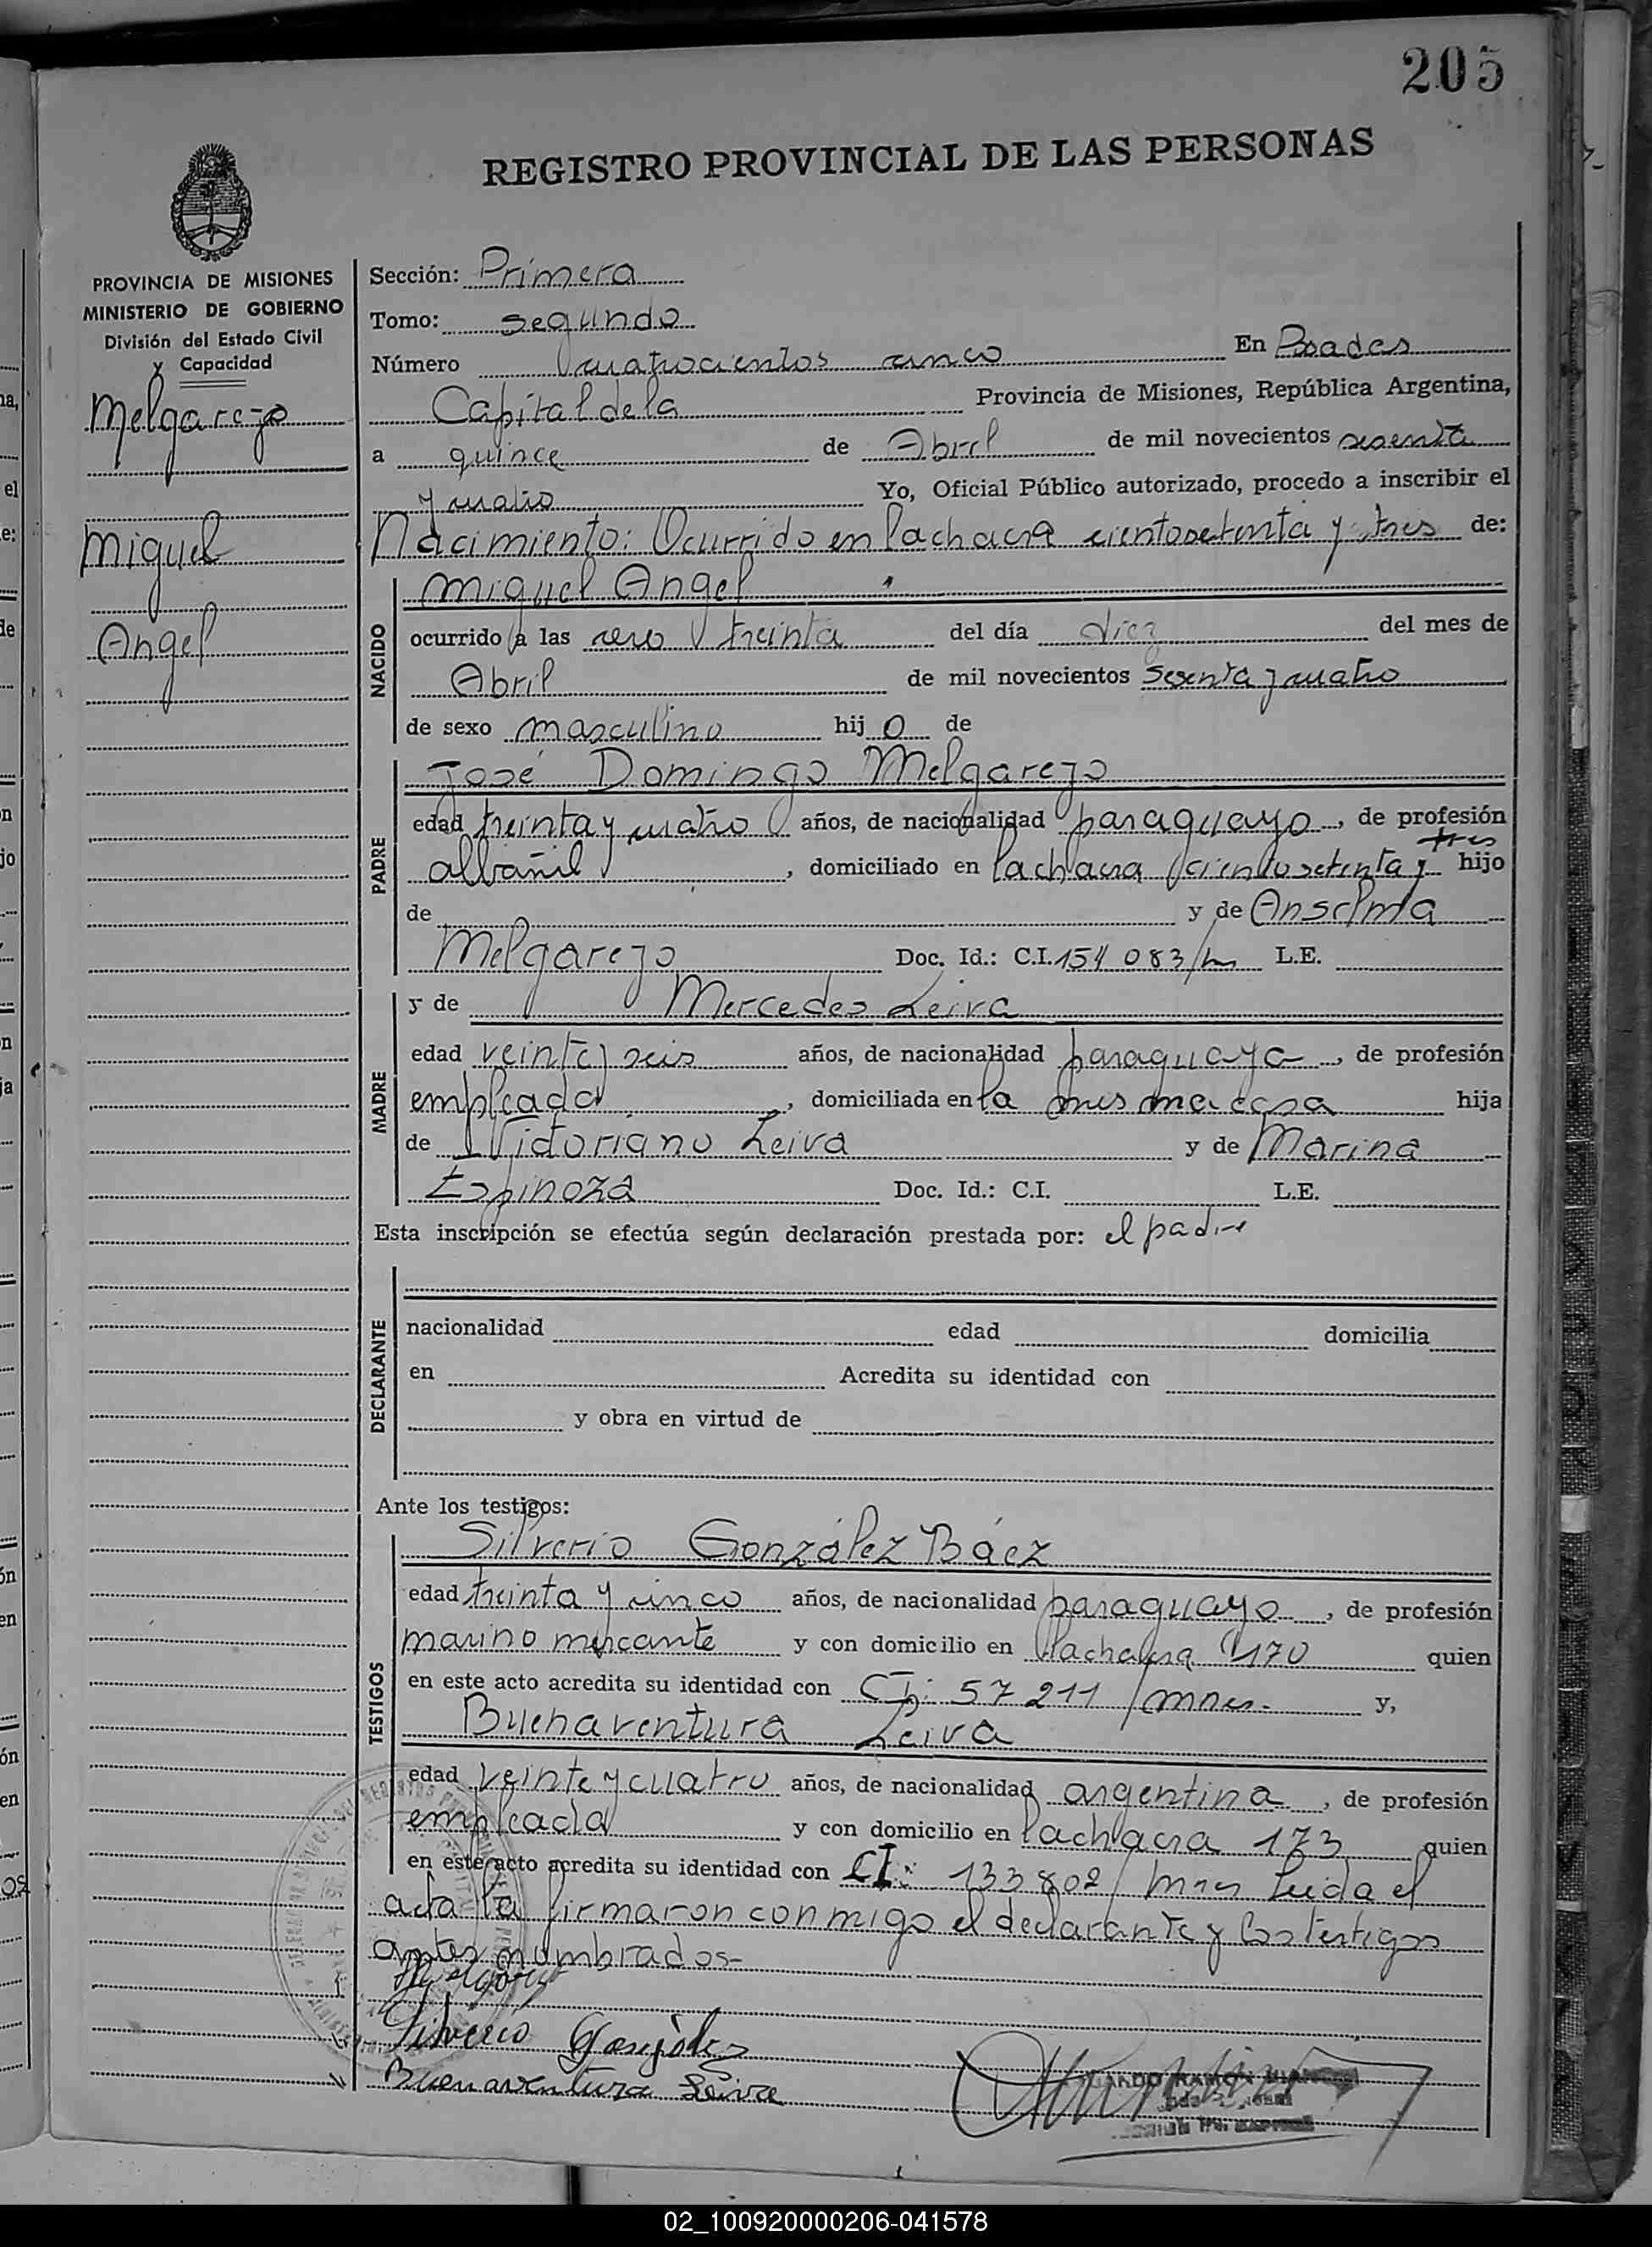 205
REGISTRO PROVINCIAL DE LAS PERSONAS
PROVINCIA DE MISIONES
MINISTERIO DE GOBIERNO
División del Estado Civil
y Capacidad
Melgarejo
Miguel
Angel
Sección: Primera
Tomo: segundo
Número cuatrocientos cinco En Posadas
Capital de la Provincia de Misiones, República Argentina,
a quince de Abril de mil novecientos sesenta
y cuatro Yo, Oficial Público autorizado, procedo a inscribir el
Nacimiento: Ocurrido en la chacra ciento setenta y tres de:
NACIDO
Miguel Angel
ocurrido a las cero treinta del día diez del mes de
Abril de mil novecientos sesenta y cuatro
de sexo masculino hijo de
PADRE
José Domingo Melgarejo
edad treinta y cuatro años, de nacionalidad paraguayo, de profesión
albañil, domiciliado en la chacra ciento setenta y tres hijo
de y de Anselma
Melgarejo Doc. Id.: C.I. 154 083/ L.E.
MADRE
y de Mercedes Leiva
edad veinte y seis años, de nacionalidad paraguaya, de profesión
empleada, domiciliada en la misma casa hija
de Victoriano Leiva y de Marina
Espinoza Doc. Id.: C.I. L.E.
Esta inscripción se efectúa según declaración prestada por: el padre
DECLARANTE
nacionalidad edad domicilia
en Acredita su identidad con
y obra en virtud de
Ante los testigos:
TESTIGOS
Silverio González Báez
edad treinta y cinco años, de nacionalidad paraguayo, de profesión
marino mercante y con domicilio en la chacra 170 quien
en este acto acredita su identidad con CI: 57 211/mnes. y,
Buenaventura Leiva
edad veinte y cuatro años, de nacionalidad argentina, de profesión
empleada y con domicilio en la chacra 173 quien
en este acto acredita su identidad con CI: 133802/mnes Leida el
acta la firmaron conmigo el declarante y los testigos
antes nombrados-
Silverio González
Buenaventura Leiva
02_100920000206-041578